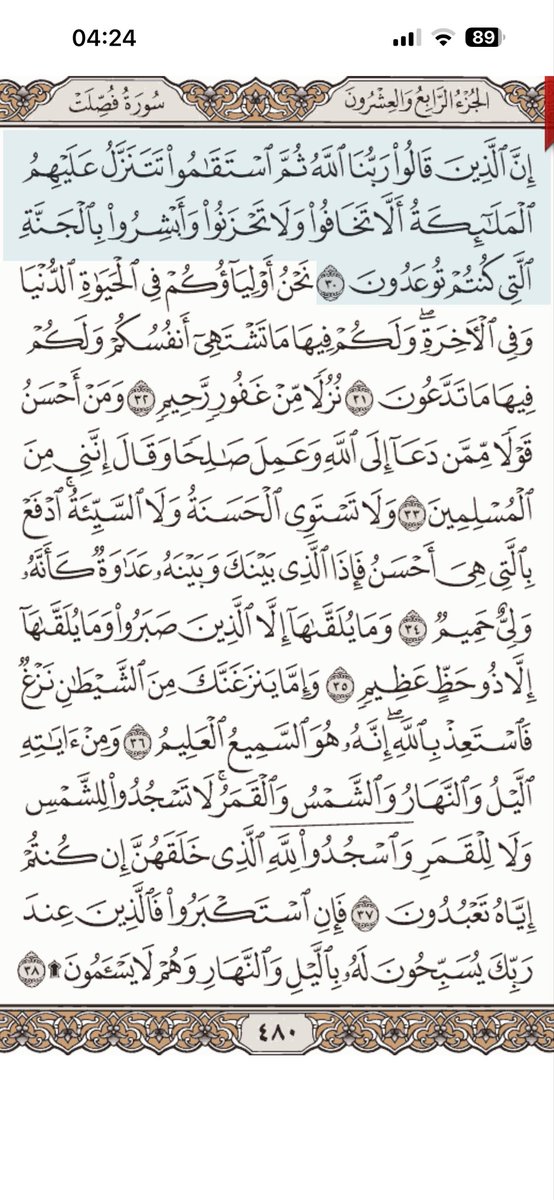 04:24
89
سُورَةُ فُصِّلَتْ
الجُزْءُ الرَّابِعُ وَالعِشْرُونَ
إِنَّ ٱلَّذِينَ قَالُوا۟ رَبُّنَا ٱللَّهُ ثُمَّ ٱسْتَقَٰمُوا۟ تَتَنَزَّلُ عَلَيْهِمُ
ٱلْمَلَٰٓئِكَةُ أَلَّا تَخَافُوا۟ وَلَا تَحْزَنُوا۟ وَأَبْشِرُوا۟ بِٱلْجَنَّةِ
ٱلَّتِى كُنتُمْ تُوعَدُونَ ٣٠ نَحْنُ أَوْلِيَآؤُكُمْ فِى ٱلْحَيَوٰةِ ٱلدُّنْيَا
وَفِى ٱلْءَاخِرَةِ ۖ وَلَكُمْ فِيهَا مَا تَشْتَهِىٓ أَنفُسُكُمْ وَلَكُمْ
فِيهَا مَا تَدَّعُونَ ٣١ نُزُلًا مِّنْ غَفُورٍ رَّحِيمٍ ٣٢ وَمَنْ أَحْسَنُ
قَوْلًا مِّمَّن دَعَآ إِلَى ٱللَّهِ وَعَمِلَ صَٰلِحًا وَقَالَ إِنَّنِى مِنَ
ٱلْمُسْلِمِينَ ٣٣ وَلَا تَسْتَوِى ٱلْحَسَنَةُ وَلَا ٱلسَّيِّئَةُ ۚ ٱدْفَعْ
بِٱلَّتِى هِىَ أَحْسَنُ فَإِذَا ٱلَّذِى بَيْنَكَ وَبَيْنَهُۥ عَدَٰوَةٌ كَأَنَّهُۥ
وَلِىٌّ حَمِيمٌ ٣٤ وَمَا يُلَقَّىٰهَآ إِلَّا ٱلَّذِينَ صَبَرُوا۟ وَمَا يُلَقَّىٰهَآ
إِلَّا ذُو حَظٍّ عَظِيمٍ ٣٥ وَإِمَّا يَنزَغَنَّكَ مِنَ ٱلشَّيْطَٰنِ نَزْغٌ
فَٱسْتَعِذْ بِٱللَّهِ ۖ إِنَّهُۥ هُوَ ٱلسَّمِيعُ ٱلْعَلِيمُ ٣٦ وَمِنْ ءَايَٰتِهِ
ٱلَّيْلُ وَٱلنَّهَارُ وَٱلشَّمْسُ وَٱلْقَمَرُ ۚ لَا تَسْجُدُوا۟ لِلشَّمْسِ
وَلَا لِلْقَمَرِ وَٱسْجُدُوا۟ لِلَّهِ ٱلَّذِى خَلَقَهُنَّ إِن كُنتُمْ
إِيَّاهُ تَعْبُدُونَ ٣٧ فَإِنِ ٱسْتَكْبَرُوا۟ فَٱلَّذِينَ عِندَ
رَبِّكَ يُسَبِّحُونَ لَهُۥ بِٱلَّيْلِ وَٱلنَّهَارِ وَهُمْ لَا يَسْـَٔمُونَ ۩ ٣٨
٤٨٠